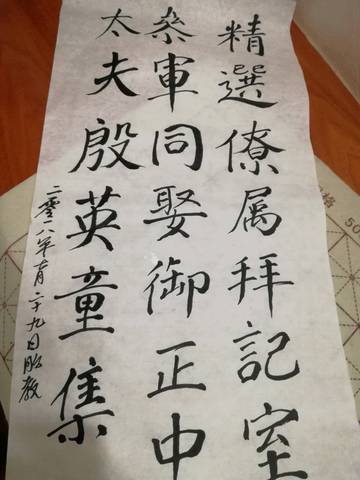 精選僚属拜記室
叅軍同娶御正中
太夫殷英童集
二零一八年月二十九日
格
50